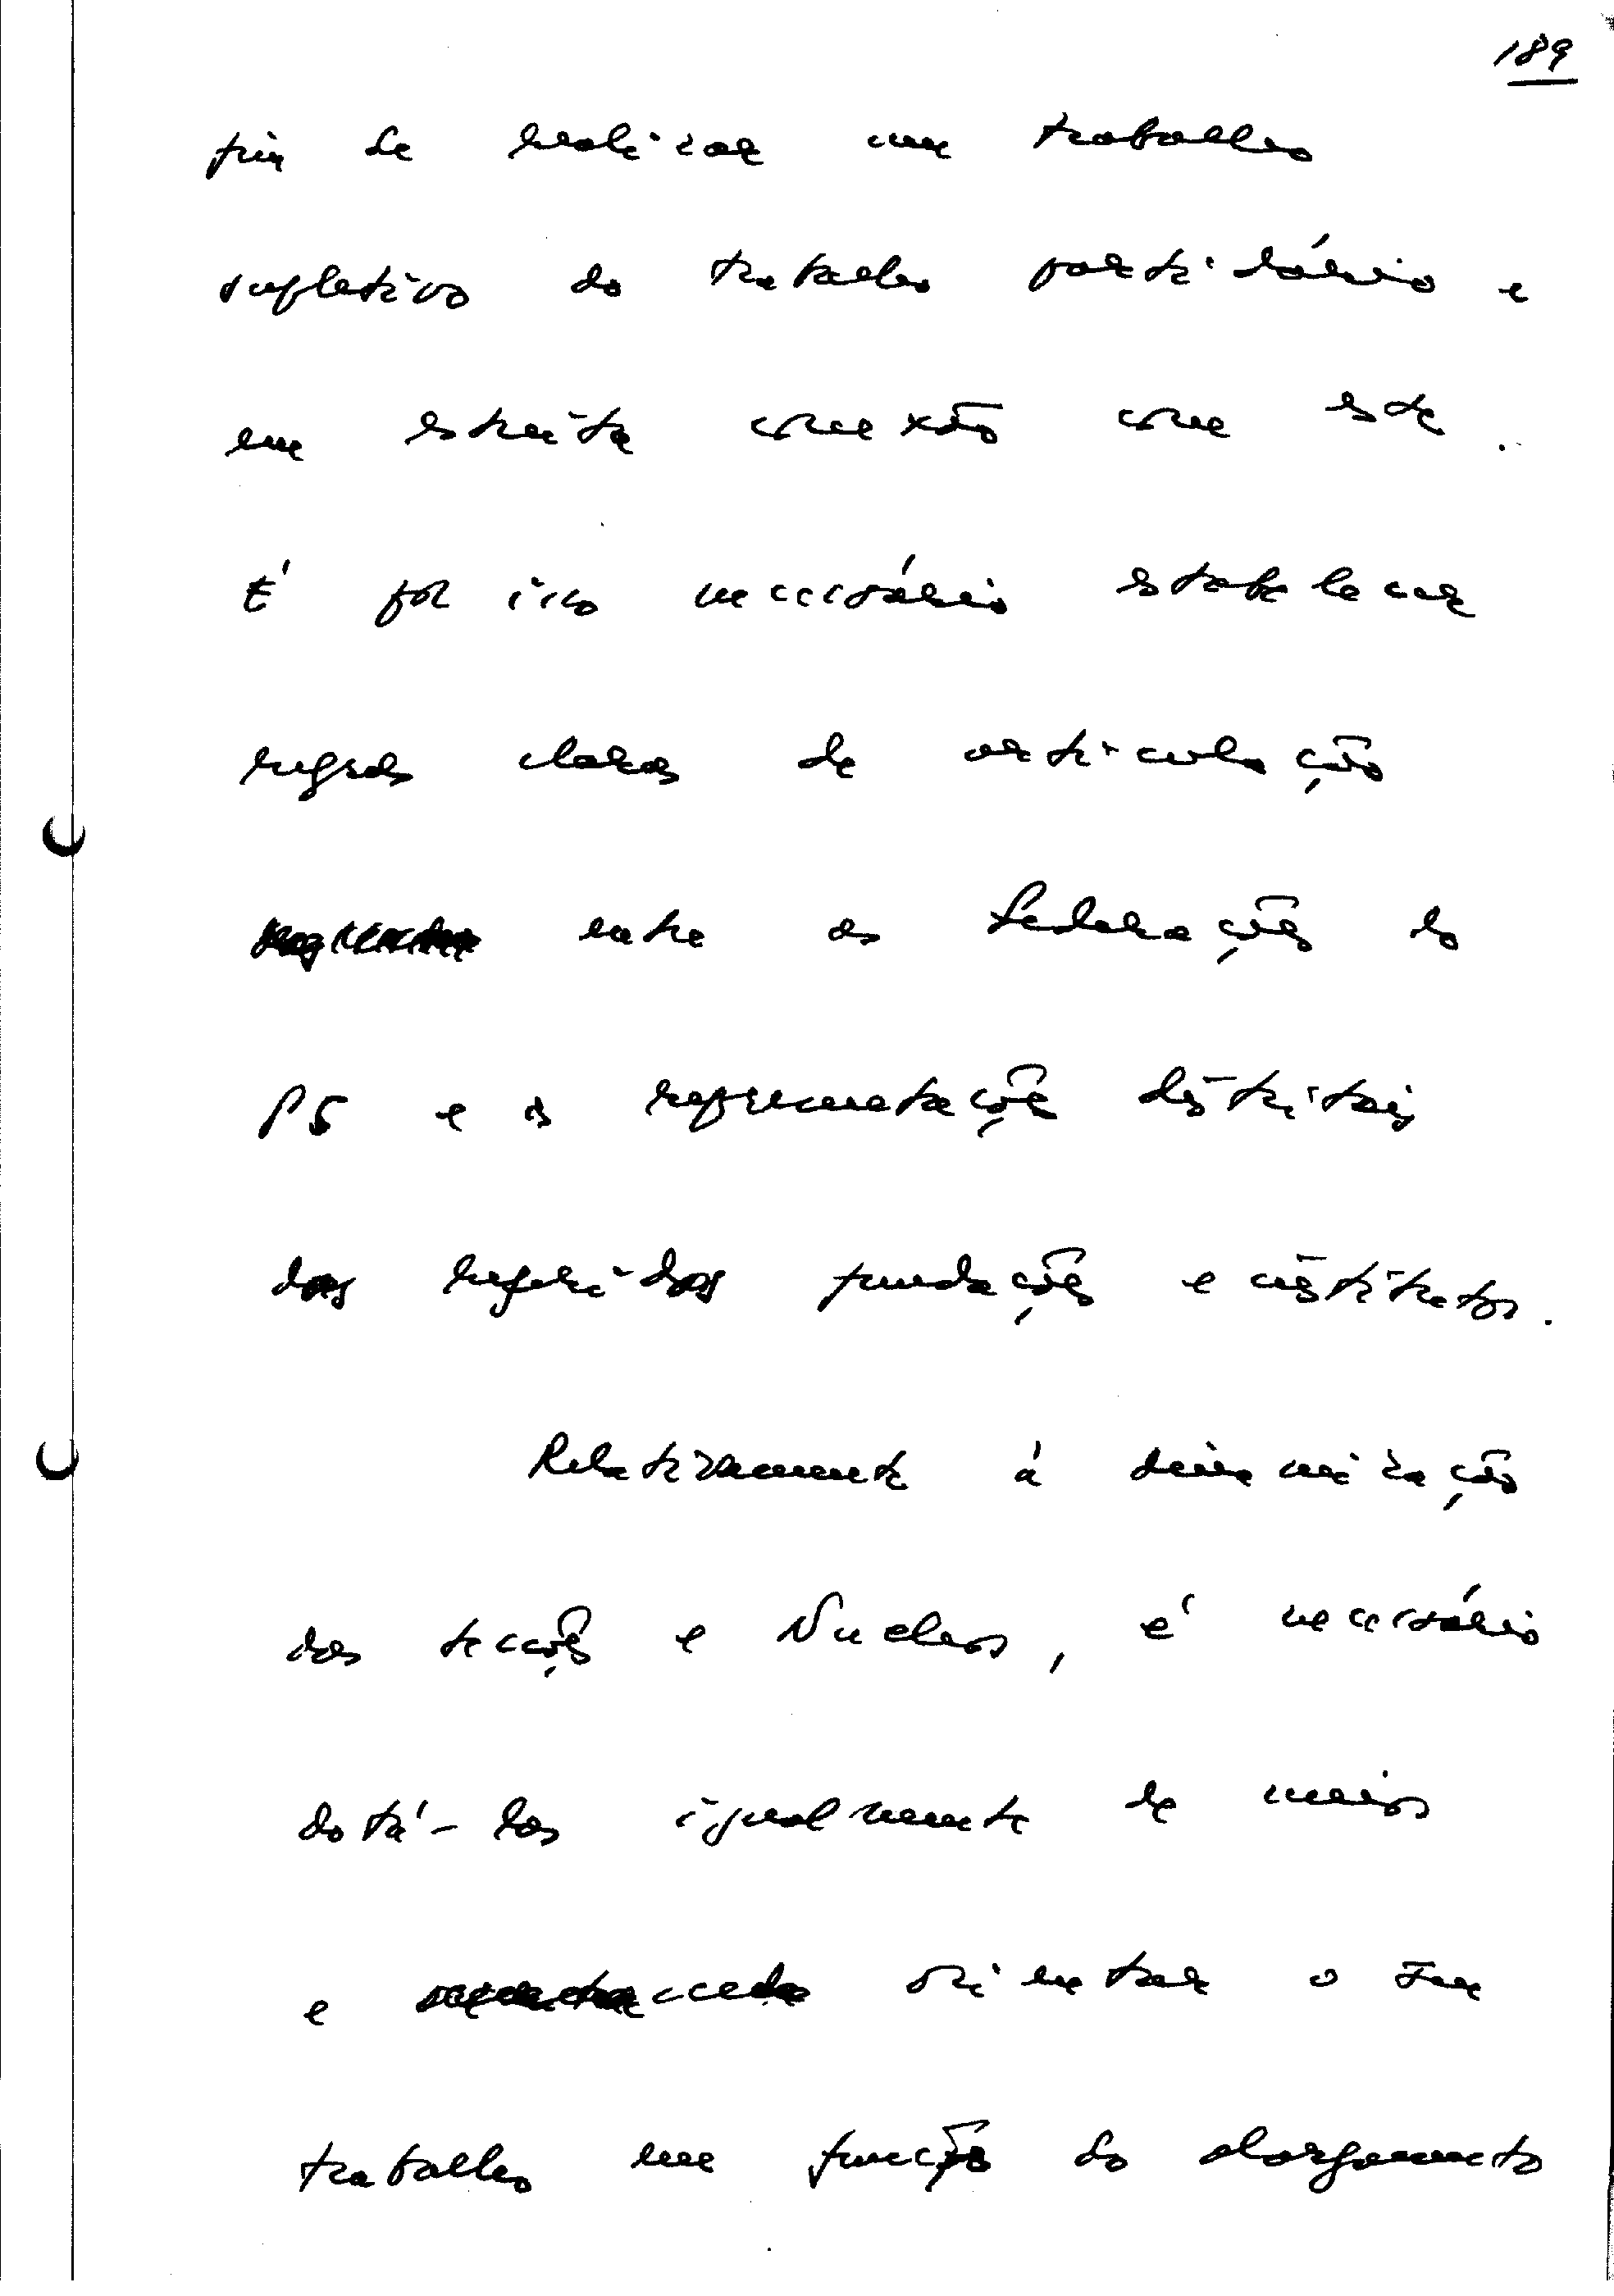 189
fim de realizar um trabalho
supletivo do trabalho partidário e
em estreita conexão com este.
É por isso necessário estabelecer
regras claras de articulação
entre as Federações do
PS e as representações distritais
dos referidos fundações e institutos.
Relativamente à dinamização
das secções e Nucleos, é necessário
dotá-los igualmente de meios
e orientar o seu
trabalho em função do alargamento